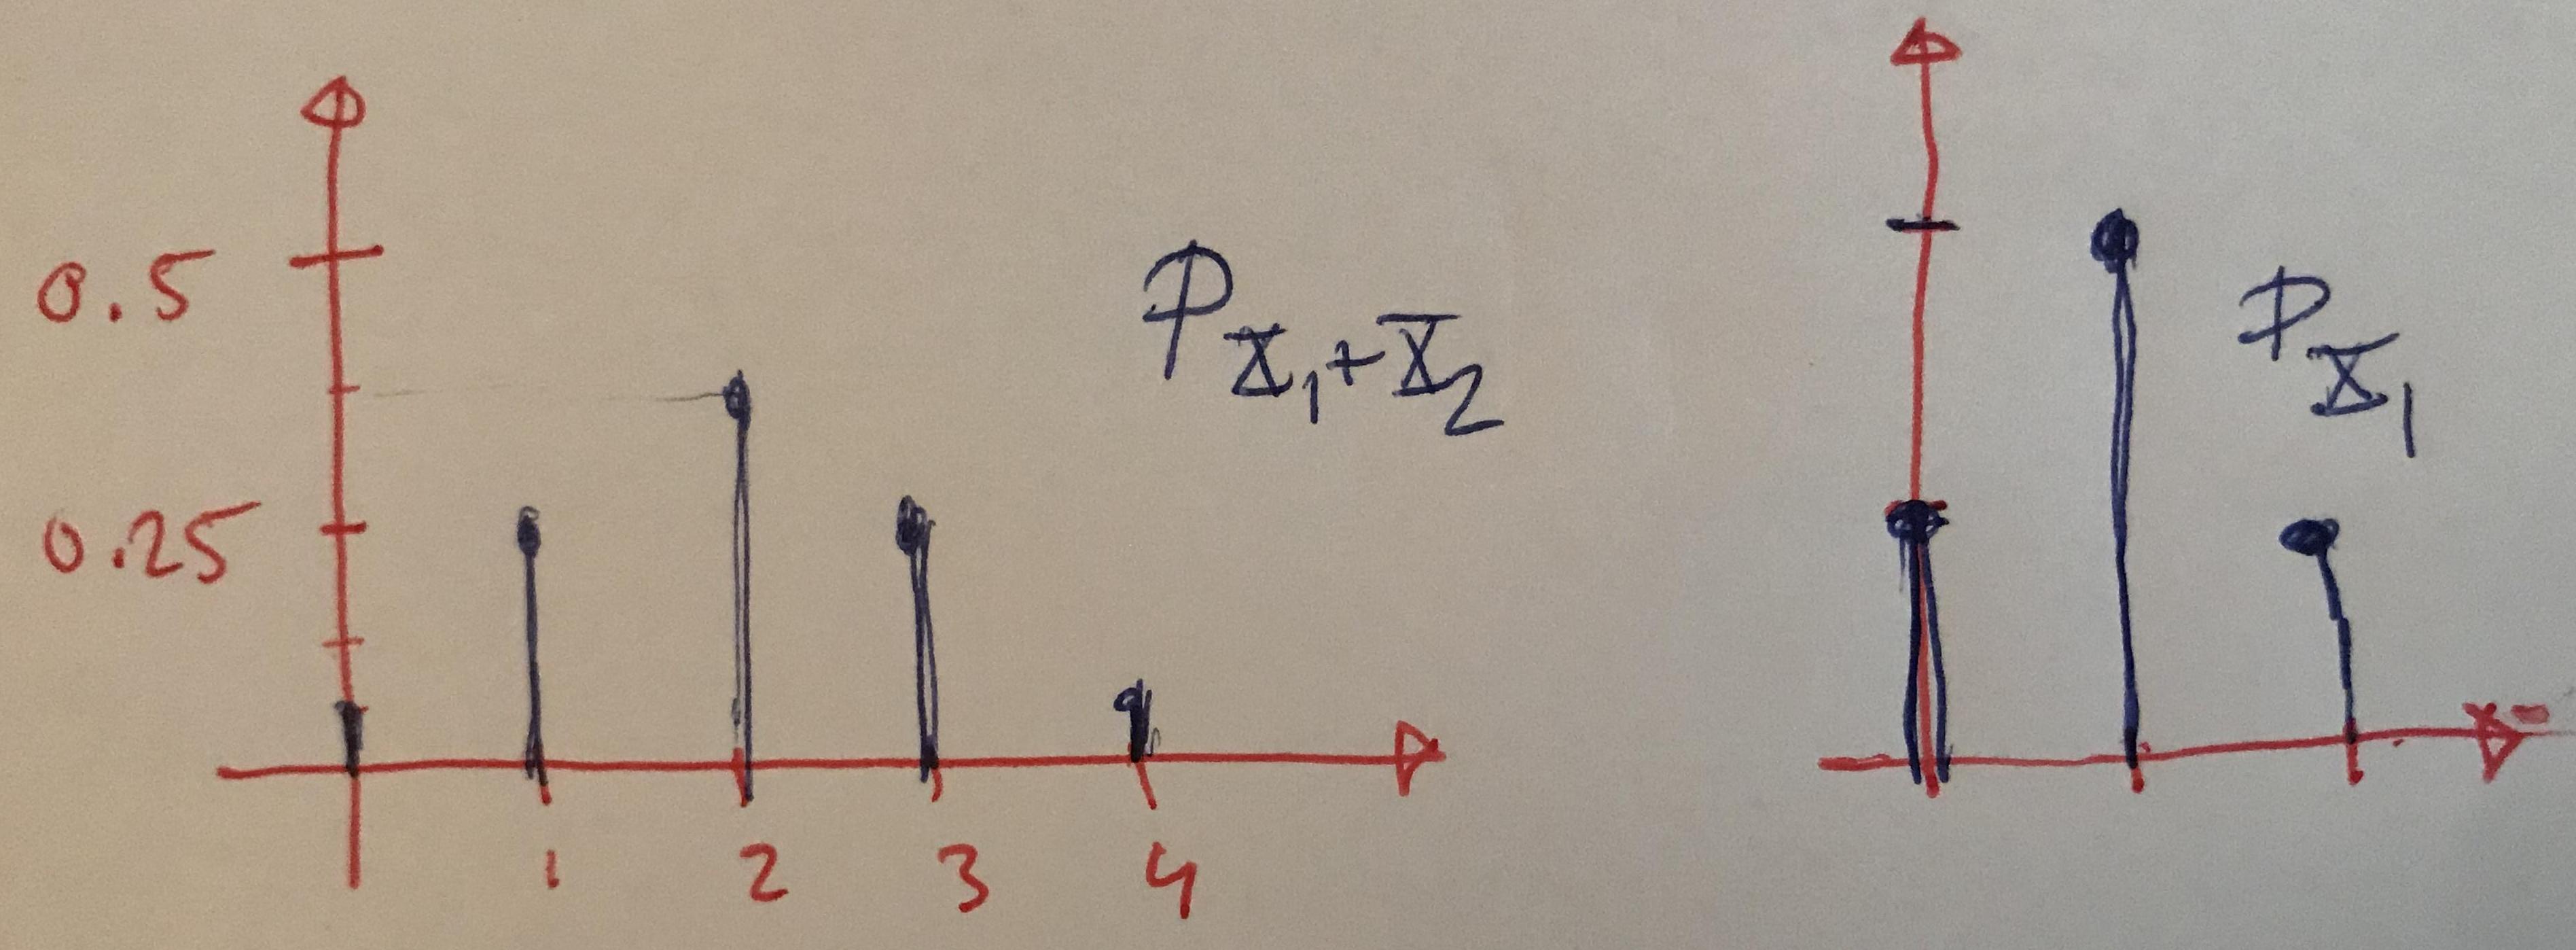 0.5
0.25
P X₁+X₂
1 2 3 4
P X₁